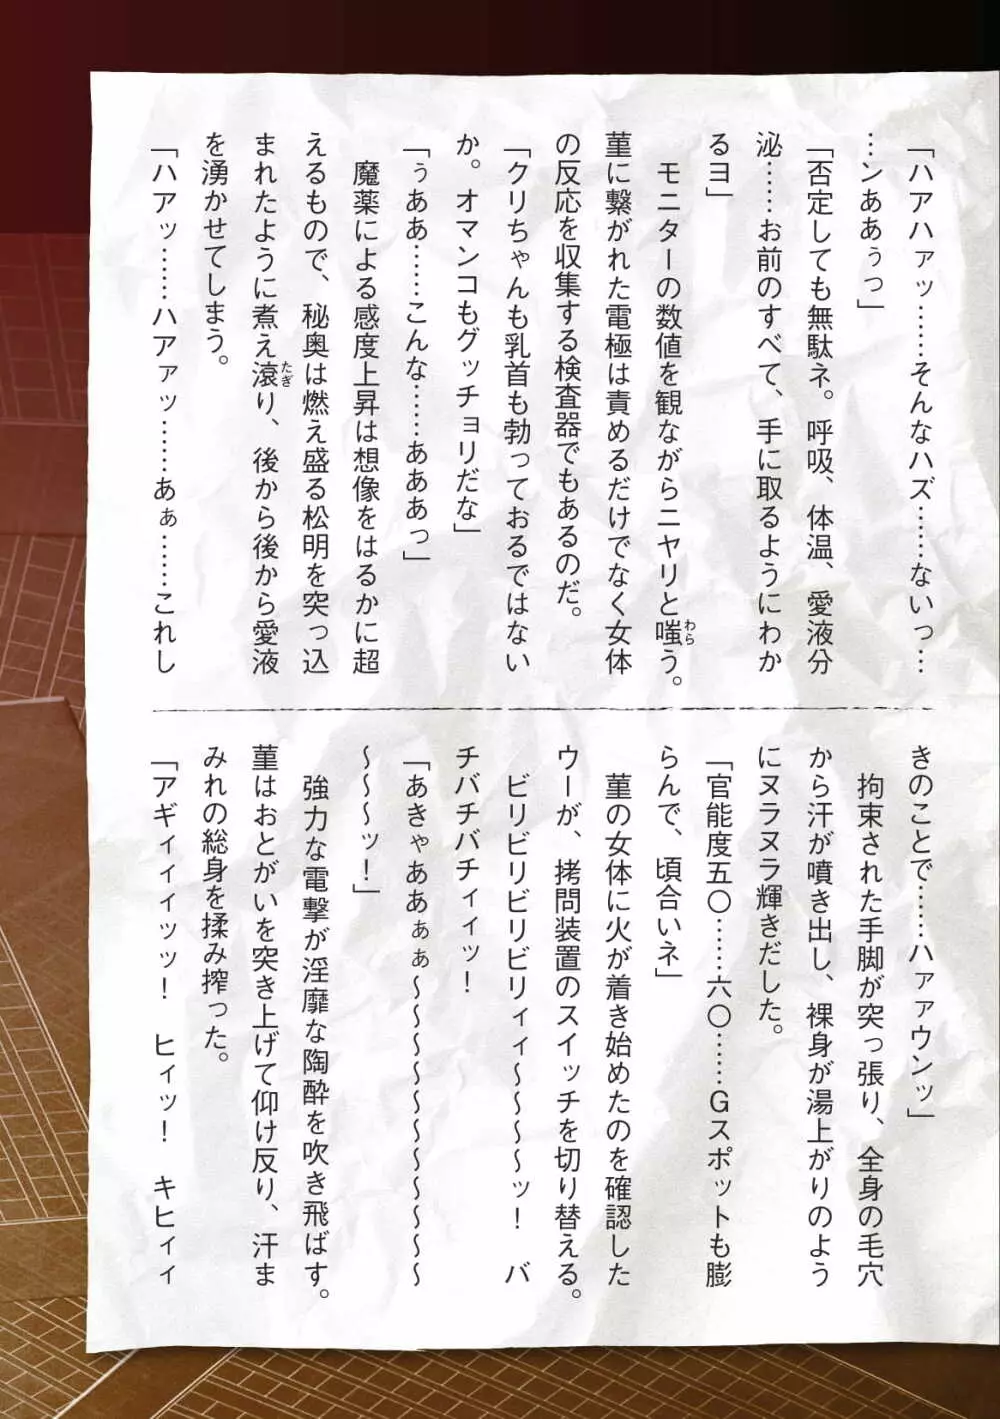 「ハアハァッ……そんなハズ……ないっ…
…ンああぅっ」
「否定しても無駄ネ。呼吸、体温、愛液分
泌……お前のすべて、手に取るようにわか
るヨ」
モニターの数値を観ながらニヤリと嗤う。
わら
菫に繋がれた電極は責めるだけでなく女体
の反応を収集する検査器でもあるのだ。
「クリちゃんも乳首も勃っておるではない
か。オマンコもグッチョリだな」
「ぅああ……こんな……あああっ」
魔薬による感度上昇は想像をはるかに超
えるもので、秘奥は燃え盛る松明を突っ込
まれたように煮え滾り、後から後から愛液
たぎ
を湧かせてしまう。
「ハアッ……ハアァッ……あぁ……これし
きのことで……ハァァウンッ」
拘束された手脚が突っ張り、全身の毛穴
から汗が噴き出し、裸身が湯上がりのよう
にヌラヌラ輝きだした。
「官能度五〇……六〇……Gスポットも膨
らんで、頃合いネ」
菫の女体に火が着き始めたのを確認した
ウーが、拷問装置のスイッチを切り替える。
ビリビリビリビリィィ～～～～ッ！　バ
チバチバチィィッ！
「あきゃああぁぁ～～～～～～～～～～～
～～～ッ！」
強力な電撃が淫靡な陶酔を吹き飛ばす。
菫はおとがいを突き上げて仰け反り、汗ま
みれの総身を揉み搾った。
「アギィィィッッ！　ヒィッ！　キヒィィ